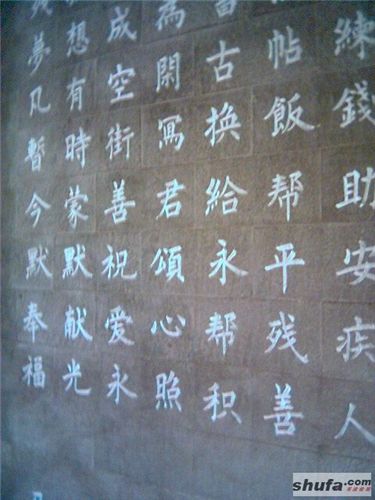 練錢助安疾人
帖飯帮平残善
古换給永帮积
為閑寫君頌心照
成空街善祝爱永
想有時蒙默献光
夢凡暫今默奉福
shufa.com